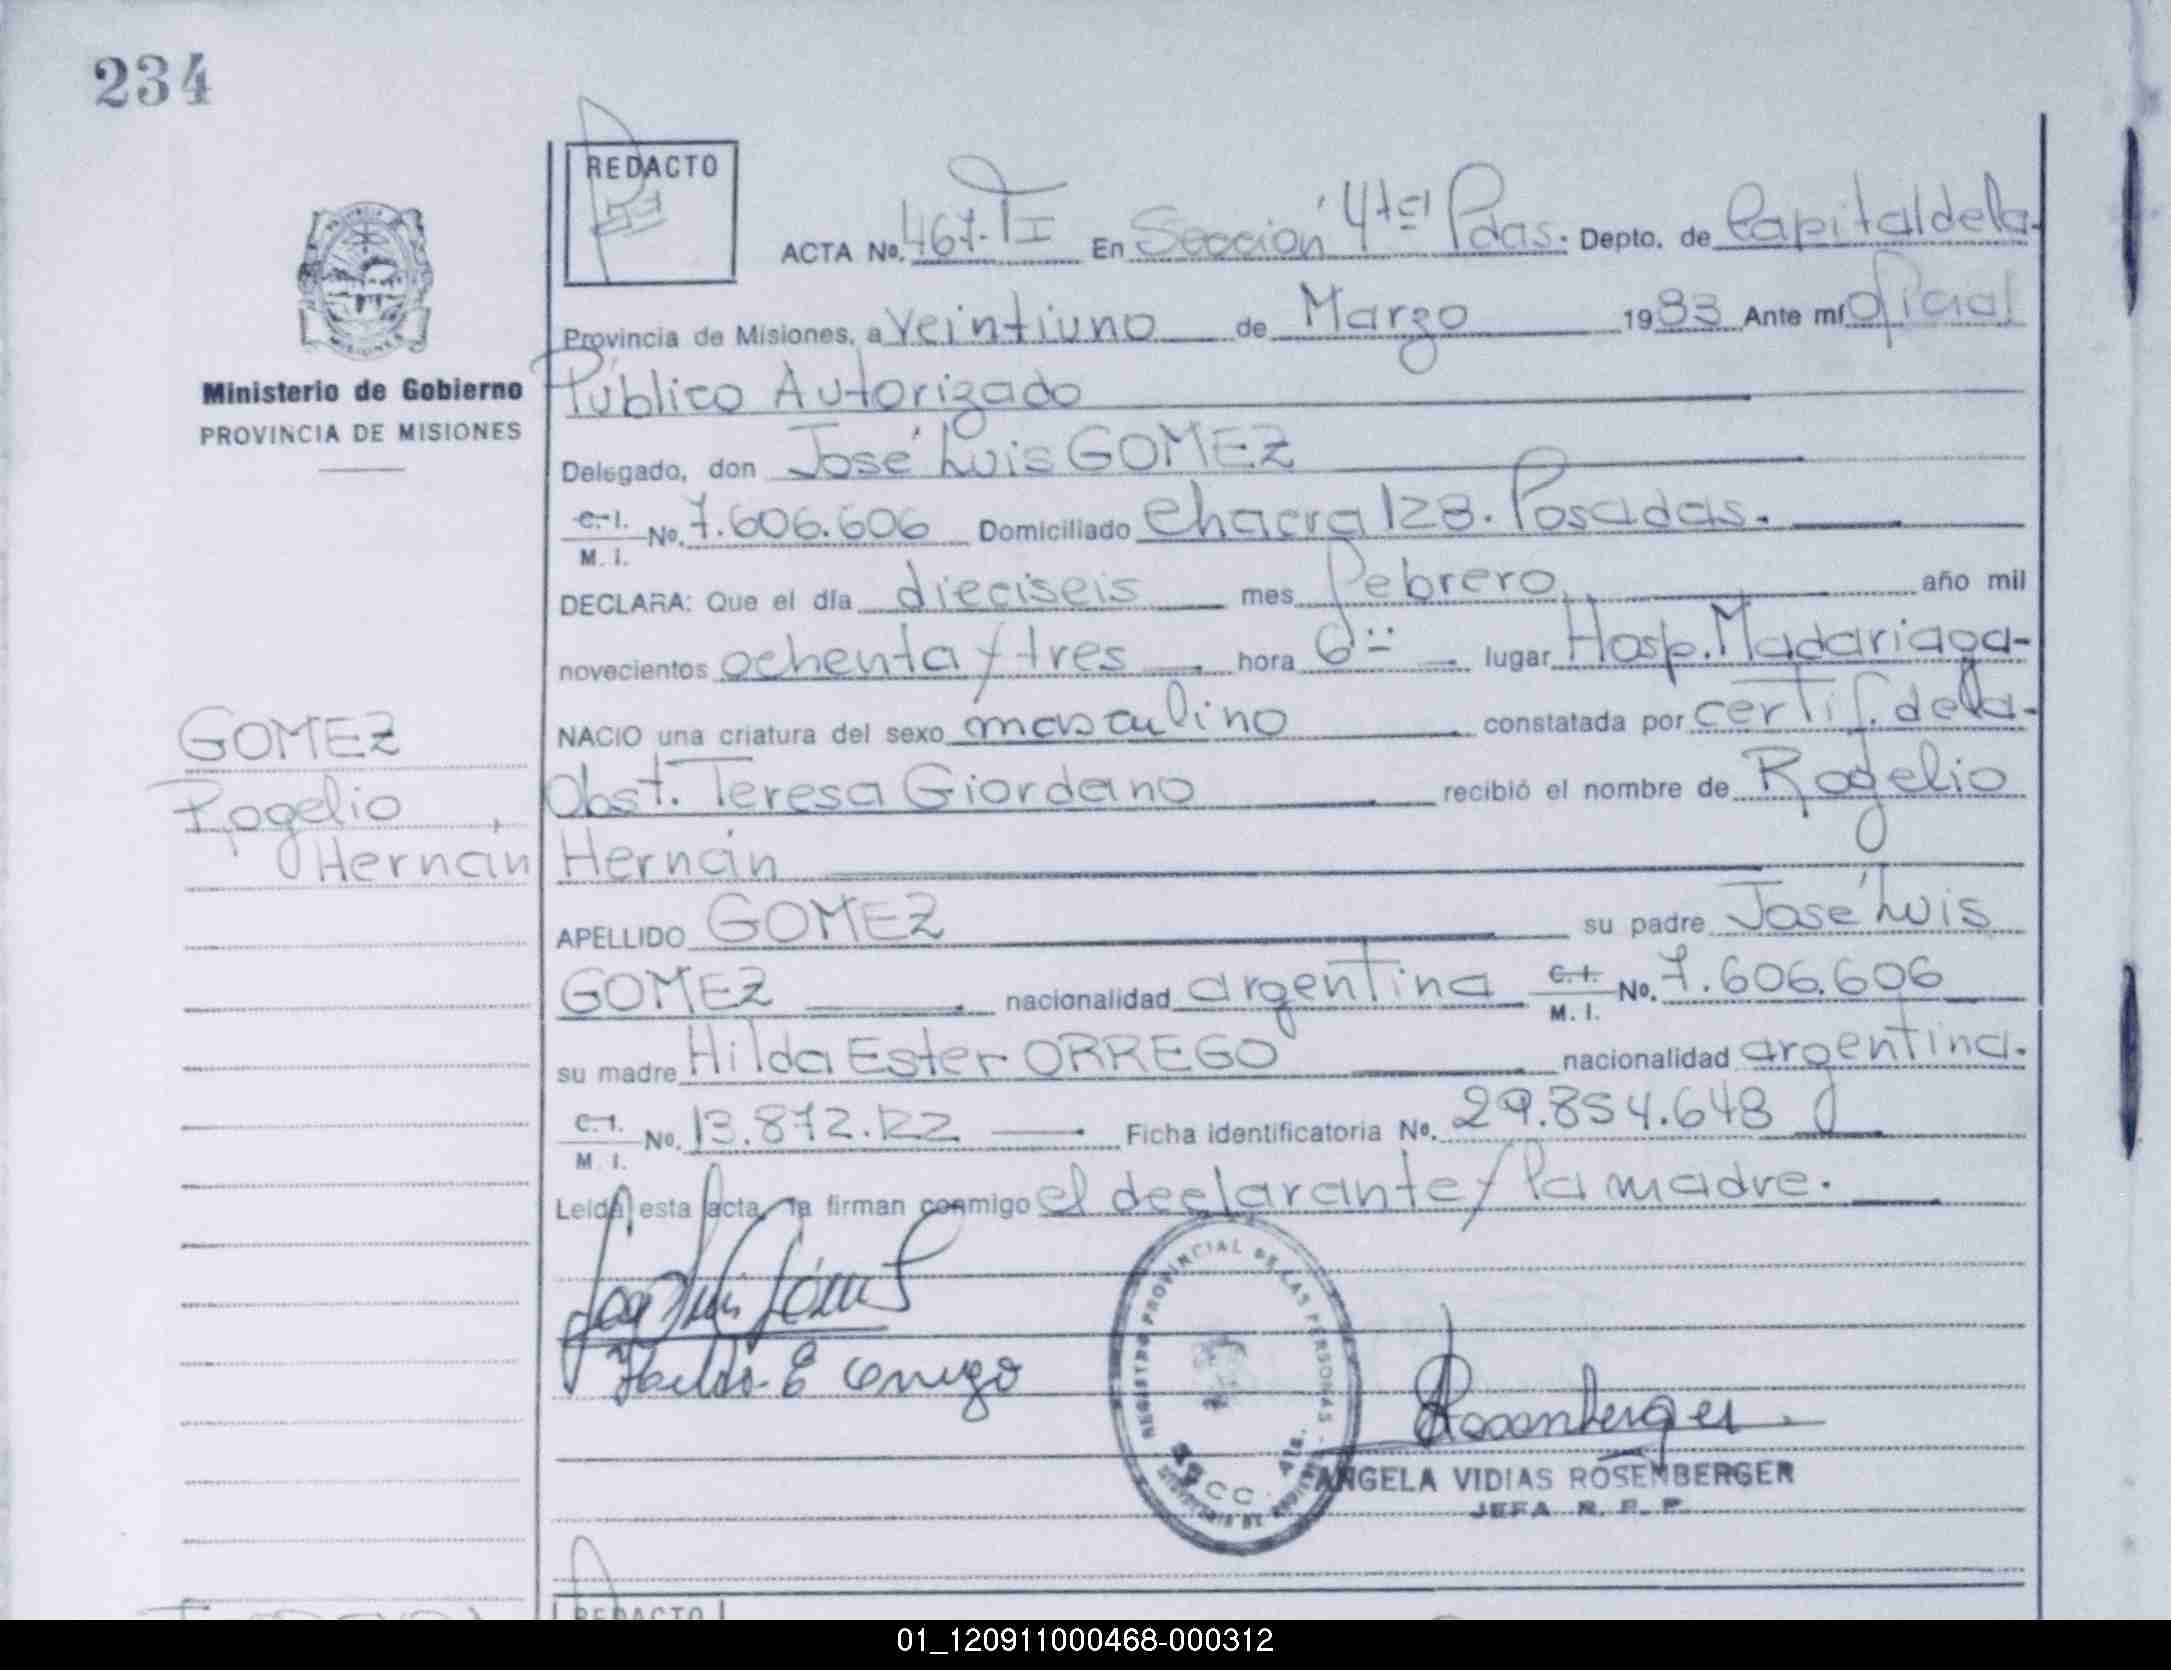 234
REDACTO
ACTA No. 467. TI En Sección 4ta Pdas. Depto. de Capital de la
Provincia de Misiones, a veintiuno de Marzo 1983 Ante mí Oficial
Público Autorizado
Ministerio de Gobierno
PROVINCIA DE MISIONES
Delegado, don José Luis GOMEZ
C. I. M. I. No. 7.606.606 Domiciliado Chacra 128. Posadas.
DECLARA: Que el día dieciseis mes febrero año mil
novecientos ochenta y tres hora 6 lugar Hosp. Madariaga-
NACIO una criatura del sexo masculino constatada por certif. de la-
Obst. Teresa Giordano recibió el nombre de Rogelio
Hernán
GOMEZ
Rogelio,
Hernán
APELLIDO GOMEZ su padre José Luis
GOMEZ nacionalidad argentina C. I. M. I. No. 7.606.606
su madre Hilda Ester ORREGO nacionalidad argentina.
C. I. M. I. No. 13.872.122 Ficha identificatoria No. 29.854.648
Leída esta acta, la firman conmigo el declarante y la madre.
José Luis Gómez
Hilda E Orrego
REGISTRO PROVINCIAL DE LAS PERSONAS
SECC. 4ta.
Rosenberger
ANGELA VIDIAS ROSENBERGER
JEFA R. P. P.
REDACTO
01_120911000468-000312